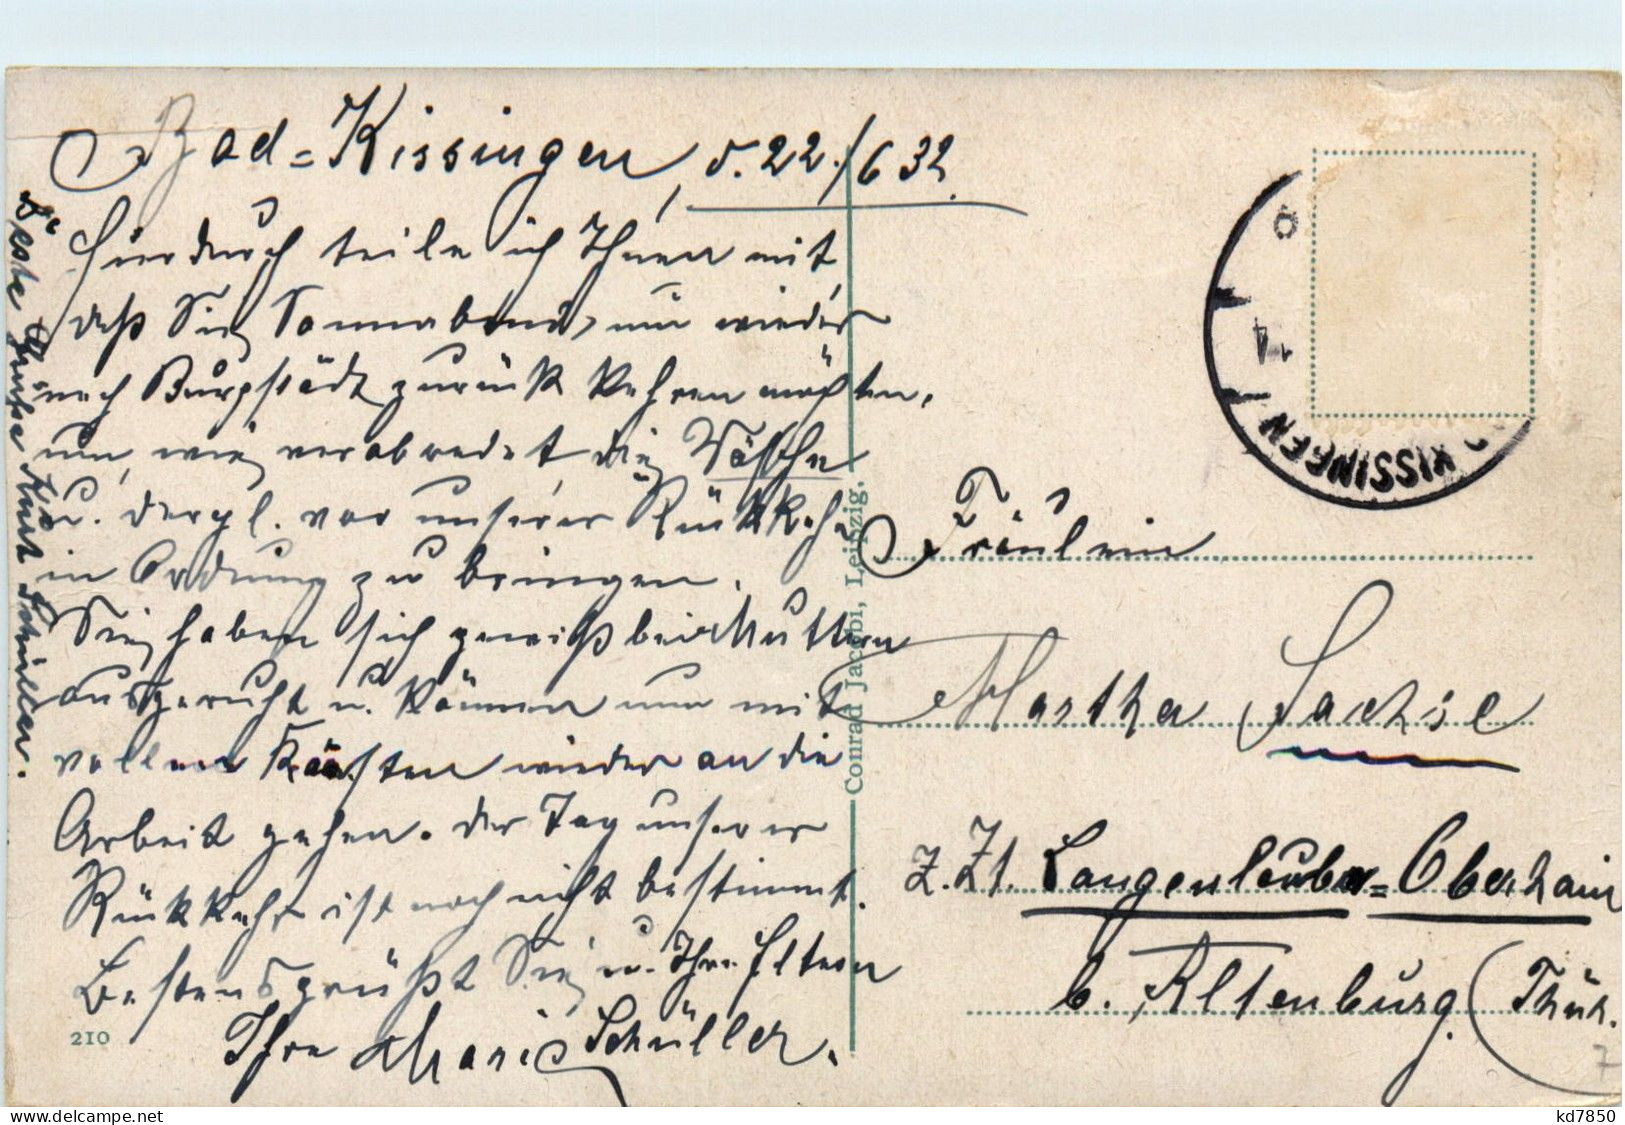 Bad-Kissingen, d. 22./6 32.
Hierdurch teile ich Ihnen mit,
daß Sie Sonnabend nun wieder
nach Burgstädt zurück kehren möchten,
um, wie verabredet die Wäsche
u. dergl. vor unserer Rückkehr
in Ordnung zu bringen.
Sie haben sich gewiß bei Muttern
ausgeruht u. können nun mit
vollen Kräften wieder an die
Arbeit gehen. Der Tag unserer
Rückkehr ist noch nicht bestimmt.
Bestens grüßt Sie u. Ihre Eltern
Ihre Marie Schüller.
Beste Grüße Kurt Schüller.
210
Conrad Jacobi, Leipzig.
KISSINGEN
Fräulein
Martha Sachse
z. Zt. Langenleuba-Oberhain
b. Altenburg. (Thür.
7
kd7850
www.delcampe.net